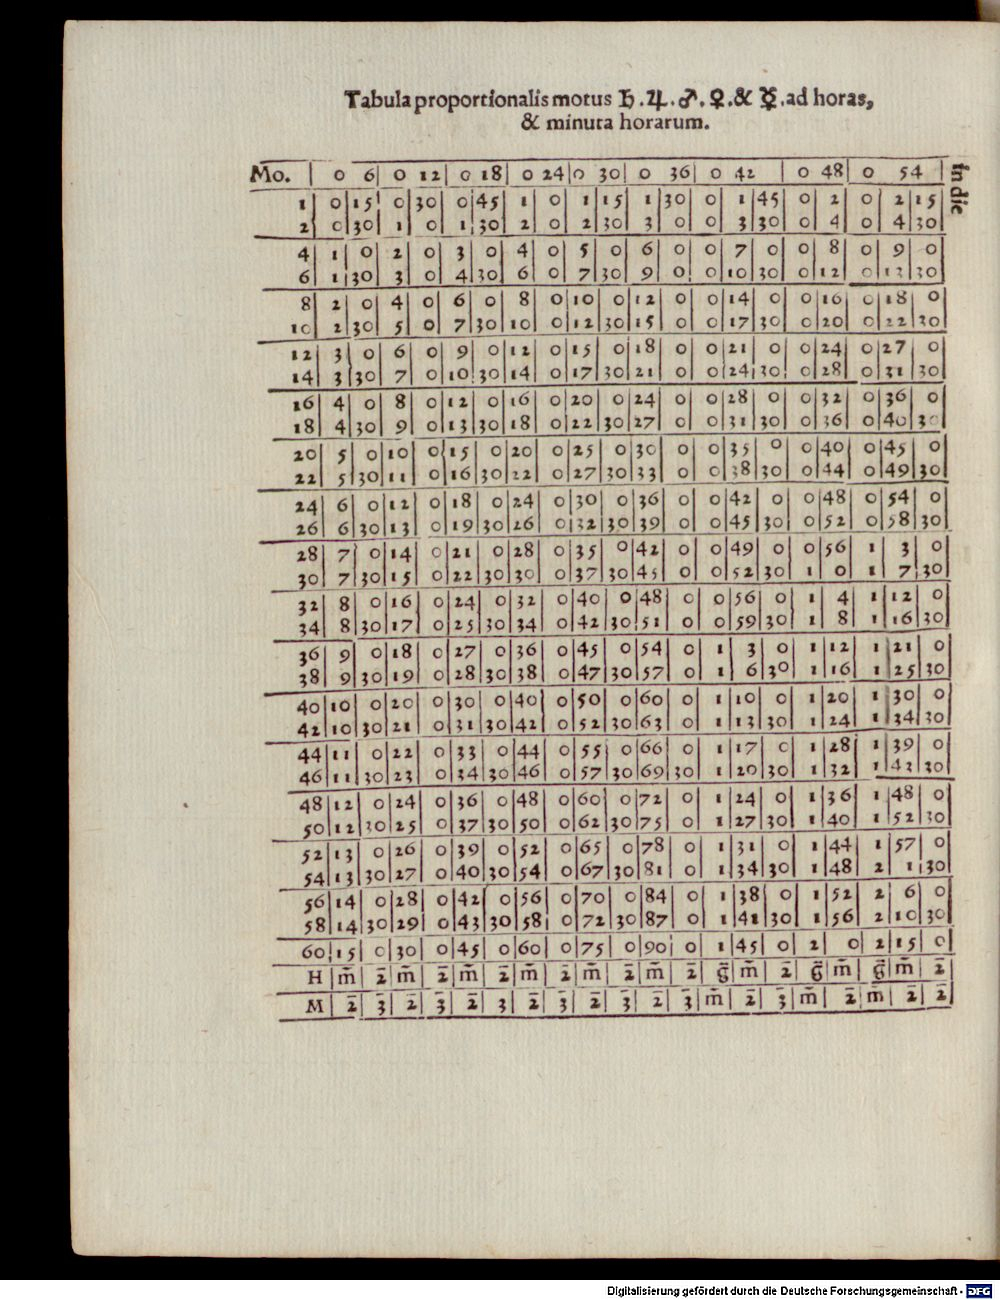 Tabula proportionalis motus ♄ . ♃ . ♂ . ♀ . & ☿ . ad horas,
& minuta horarum.
Mo. | 0 6 | 0 12 | 0 18 | 0 24 | 0 30 | 0 36 | 0 42 | 0 48 | 0 54 | in die
1 | 0 | 15 | 0 | 30 | 0 | 45 | 1 | 0 | 1 | 15 | 1 | 30 | 0 | 1 | 45 | 0 | 2 | 0 | 2 | 15
2 | 0 | 30 | 1 | 0 | 1 | 30 | 2 | 0 | 2 | 30 | 3 | 0 | 0 | 3 | 30 | 0 | 4 | 0 | 4 | 30
4 | 1 | 0 | 2 | 0 | 3 | 0 | 4 | 0 | 5 | 0 | 6 | 0 | 0 | 7 | 0 | 0 | 8 | 0 | 9 | 0
6 | 1 | 30 | 3 | 0 | 4 | 30 | 6 | 0 | 7 | 30 | 9 | 0 | 0 | 10 | 30 | 0 | 12 | 0 | 13 | 30
8 | 2 | 0 | 4 | 0 | 6 | 0 | 8 | 0 | 10 | 0 | 12 | 0 | 0 | 14 | 0 | 0 | 16 | 0 | 18 | 0
10 | 2 | 30 | 5 | 0 | 7 | 30 | 10 | 0 | 12 | 30 | 15 | 0 | 0 | 17 | 30 | 0 | 20 | 0 | 22 | 30
12 | 3 | 0 | 6 | 0 | 9 | 0 | 12 | 0 | 15 | 0 | 18 | 0 | 0 | 21 | 0 | 0 | 24 | 0 | 27 | 0
14 | 3 | 30 | 7 | 0 | 10 | 30 | 14 | 0 | 17 | 30 | 21 | 0 | 0 | 24 | 30 | 0 | 28 | 0 | 31 | 30
16 | 4 | 0 | 8 | 0 | 12 | 0 | 16 | 0 | 20 | 0 | 24 | 0 | 0 | 28 | 0 | 0 | 32 | 0 | 36 | 0
18 | 4 | 30 | 9 | 0 | 13 | 30 | 18 | 0 | 22 | 30 | 27 | 0 | 0 | 31 | 30 | 0 | 36 | 0 | 40 | 30
20 | 5 | 0 | 10 | 0 | 15 | 0 | 20 | 0 | 25 | 0 | 30 | 0 | 0 | 35 | 0 | 0 | 40 | 0 | 45 | 0
22 | 5 | 30 | 11 | 0 | 16 | 30 | 22 | 0 | 27 | 30 | 33 | 0 | 0 | 38 | 30 | 0 | 44 | 0 | 49 | 30
24 | 6 | 0 | 12 | 0 | 18 | 0 | 24 | 0 | 30 | 0 | 36 | 0 | 0 | 42 | 0 | 0 | 48 | 0 | 54 | 0
26 | 6 | 30 | 13 | 0 | 19 | 30 | 26 | 0 | 32 | 30 | 39 | 0 | 0 | 45 | 30 | 0 | 52 | 0 | 58 | 30
28 | 7 | 0 | 14 | 0 | 21 | 0 | 28 | 0 | 35 | 0 | 42 | 0 | 0 | 49 | 0 | 0 | 56 | 1 | 3 | 0
30 | 7 | 30 | 15 | 0 | 22 | 30 | 30 | 0 | 37 | 30 | 45 | 0 | 0 | 52 | 30 | 1 | 0 | 1 | 7 | 30
32 | 8 | 0 | 16 | 0 | 24 | 0 | 32 | 0 | 40 | 0 | 48 | 0 | 0 | 56 | 0 | 1 | 4 | 1 | 12 | 0
34 | 8 | 30 | 17 | 0 | 25 | 30 | 34 | 0 | 42 | 30 | 51 | 0 | 0 | 59 | 30 | 1 | 8 | 1 | 16 | 30
36 | 9 | 0 | 18 | 0 | 27 | 0 | 36 | 0 | 45 | 0 | 54 | 0 | 1 | 3 | 0 | 1 | 12 | 1 | 21 | 0
38 | 9 | 30 | 19 | 0 | 28 | 30 | 38 | 0 | 47 | 30 | 57 | 0 | 1 | 6 | 30 | 1 | 16 | 1 | 25 | 30
40 | 10 | 0 | 20 | 0 | 30 | 0 | 40 | 0 | 50 | 0 | 60 | 0 | 1 | 10 | 0 | 1 | 20 | 1 | 30 | 0
42 | 10 | 30 | 21 | 0 | 31 | 30 | 42 | 0 | 52 | 30 | 63 | 0 | 1 | 13 | 30 | 1 | 24 | 1 | 34 | 30
44 | 11 | 0 | 22 | 0 | 33 | 0 | 44 | 0 | 55 | 0 | 66 | 0 | 1 | 17 | 0 | 1 | 28 | 1 | 39 | 0
46 | 11 | 30 | 23 | 0 | 34 | 30 | 46 | 0 | 57 | 30 | 69 | 30 | 1 | 20 | 30 | 1 | 32 | 1 | 43 | 30
48 | 12 | 0 | 24 | 0 | 36 | 0 | 48 | 0 | 60 | 0 | 72 | 0 | 1 | 24 | 0 | 1 | 36 | 1 | 48 | 0
50 | 12 | 30 | 25 | 0 | 37 | 30 | 50 | 0 | 62 | 30 | 75 | 0 | 1 | 27 | 30 | 1 | 40 | 1 | 52 | 30
52 | 13 | 0 | 26 | 0 | 39 | 0 | 52 | 0 | 65 | 0 | 78 | 0 | 1 | 31 | 0 | 1 | 44 | 1 | 57 | 0
54 | 13 | 30 | 27 | 0 | 40 | 30 | 54 | 0 | 67 | 30 | 81 | 0 | 1 | 34 | 30 | 1 | 48 | 2 | 1 | 30
56 | 14 | 0 | 28 | 0 | 42 | 0 | 56 | 0 | 70 | 0 | 84 | 0 | 1 | 38 | 0 | 1 | 52 | 2 | 6 | 0
58 | 14 | 30 | 29 | 0 | 43 | 30 | 58 | 0 | 72 | 30 | 87 | 0 | 1 | 41 | 30 | 1 | 56 | 2 | 10 | 30
60 | 15 | 0 | 30 | 0 | 45 | 0 | 60 | 0 | 75 | 0 | 90 | 0 | 1 | 45 | 0 | 2 | 0 | 2 | 15 | 0
H | m̄ | 2̄ | m̄ | 2̄ | m̄ | 2̄ | m̄ | 2̄ | m̄ | 2̄ | m̄ | 2̄ | ḡ | m̄ | 2̄ | ḡ | m̄ | ḡ | m̄ | 2̄
M | 2̄ | 3̄ | 2̄ | 3̄ | 2̄ | 3̄ | 2̄ | 3̄ | 2̄ | 3̄ | 2̄ | 3̄ | m̄ | 2̄ | 3̄ | m̄ | 2̄ | m̄ | 2̄ | 2̄
Digitalisierung gefördert durch die Deutsche Forschungsgemeinschaft - DFG